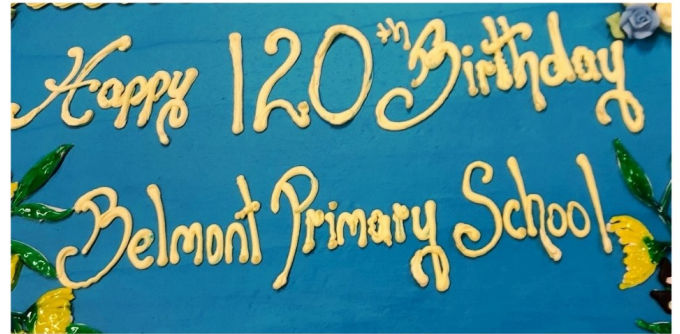 Happy 120th Birthday
Belmont Primary School